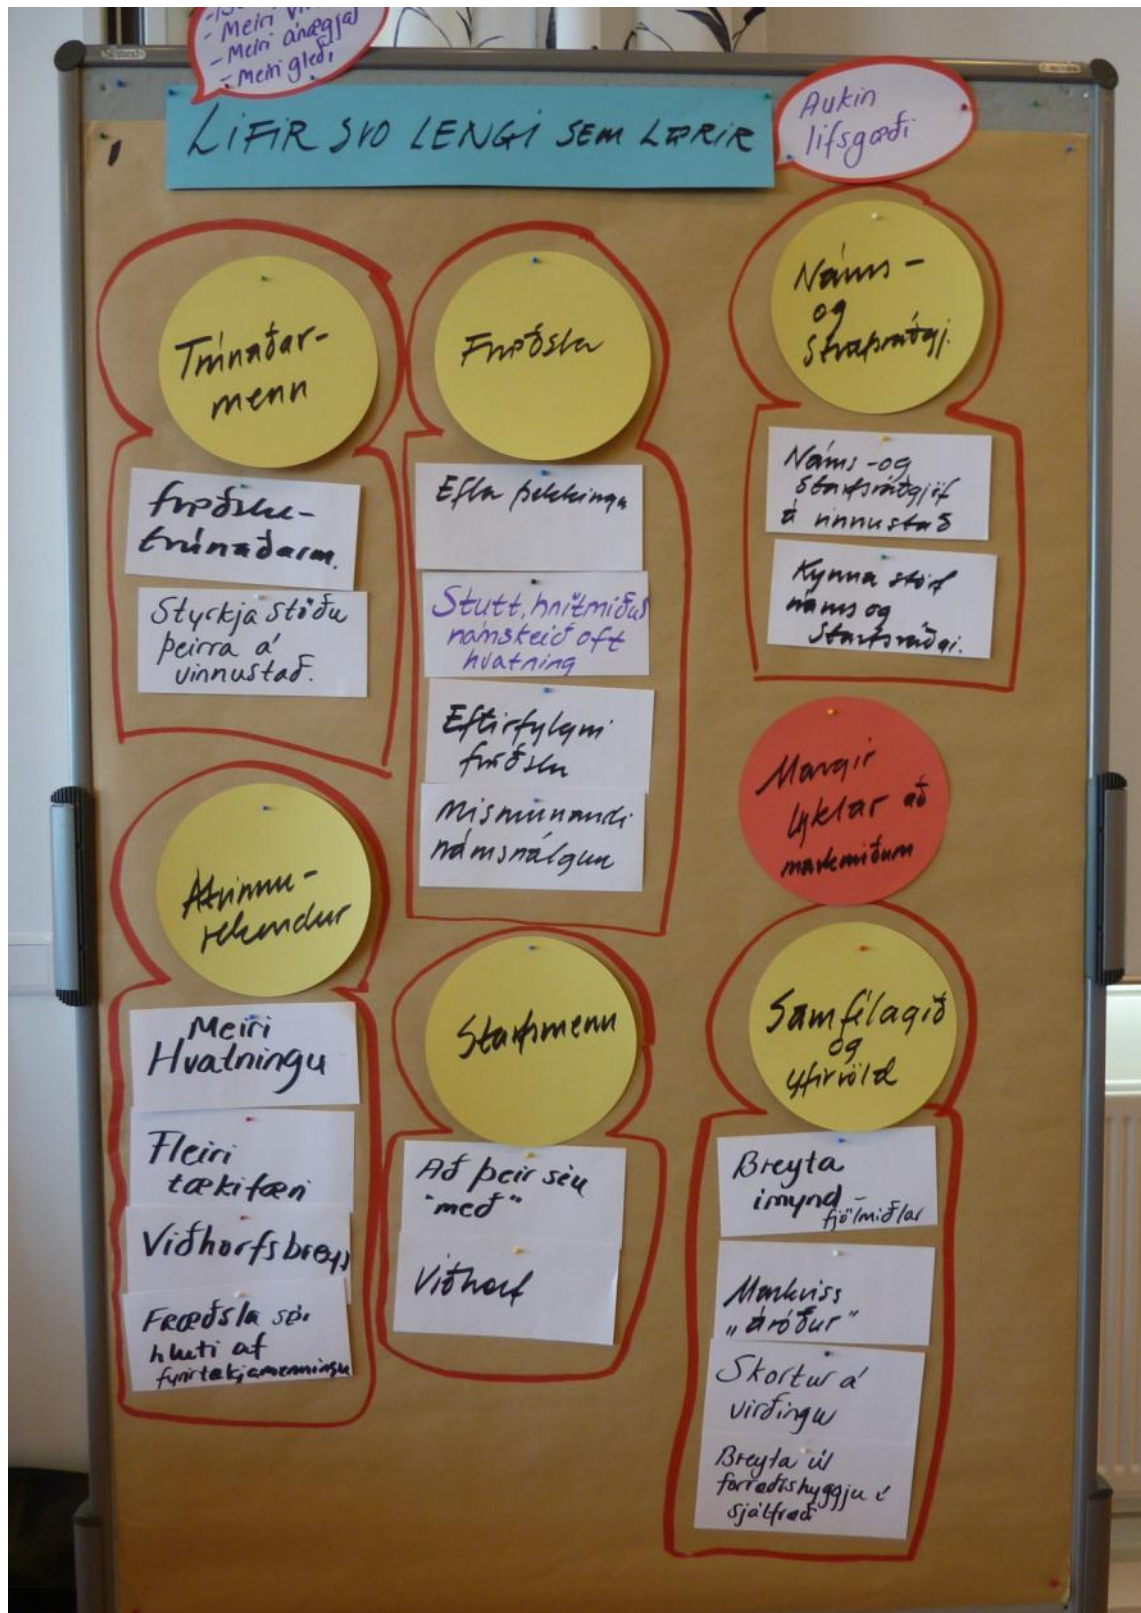 - Meiri
- Meiri ánægja
- Meiri gleði
LIFIR SVO LENGI SEM LÆRIR
Aukin
lífsgæði
Trúnaðar-
menn
fræðslu-
trúnaðarm.
Styrkja stöðu
þeirra á
vinnustað.
Fræðsla
Efla þekkingu
Stutt, hnitmiðuð
námskeið oft
hvatning
Eftirfylgni
fræðslu
Mismunandi
námsnálgun
Náms-
og
starfsráðgj.
Náms-og
starfsráðgjöf
á vinnustað
Kynna störf
náms og
starfsráðgj.
Margir
lyklar að
markmiðum
Atvinnu-
rekendur
Meiri
Hvatningu
Fleiri
tækifæri
Viðhorfsbreyt
Fræðsla sé
hluti af
fyrirtækjamenningu
Starfsmenn
Að þeir séu
"með"
Viðhorf
Samfélagið
og
yfirvöld
Breyta
ímynd -
fjölmiðlar
Markviss
„áróður"
Skortur á
virðingu
Breyta úr
forræðishyggju í
sjálfræði